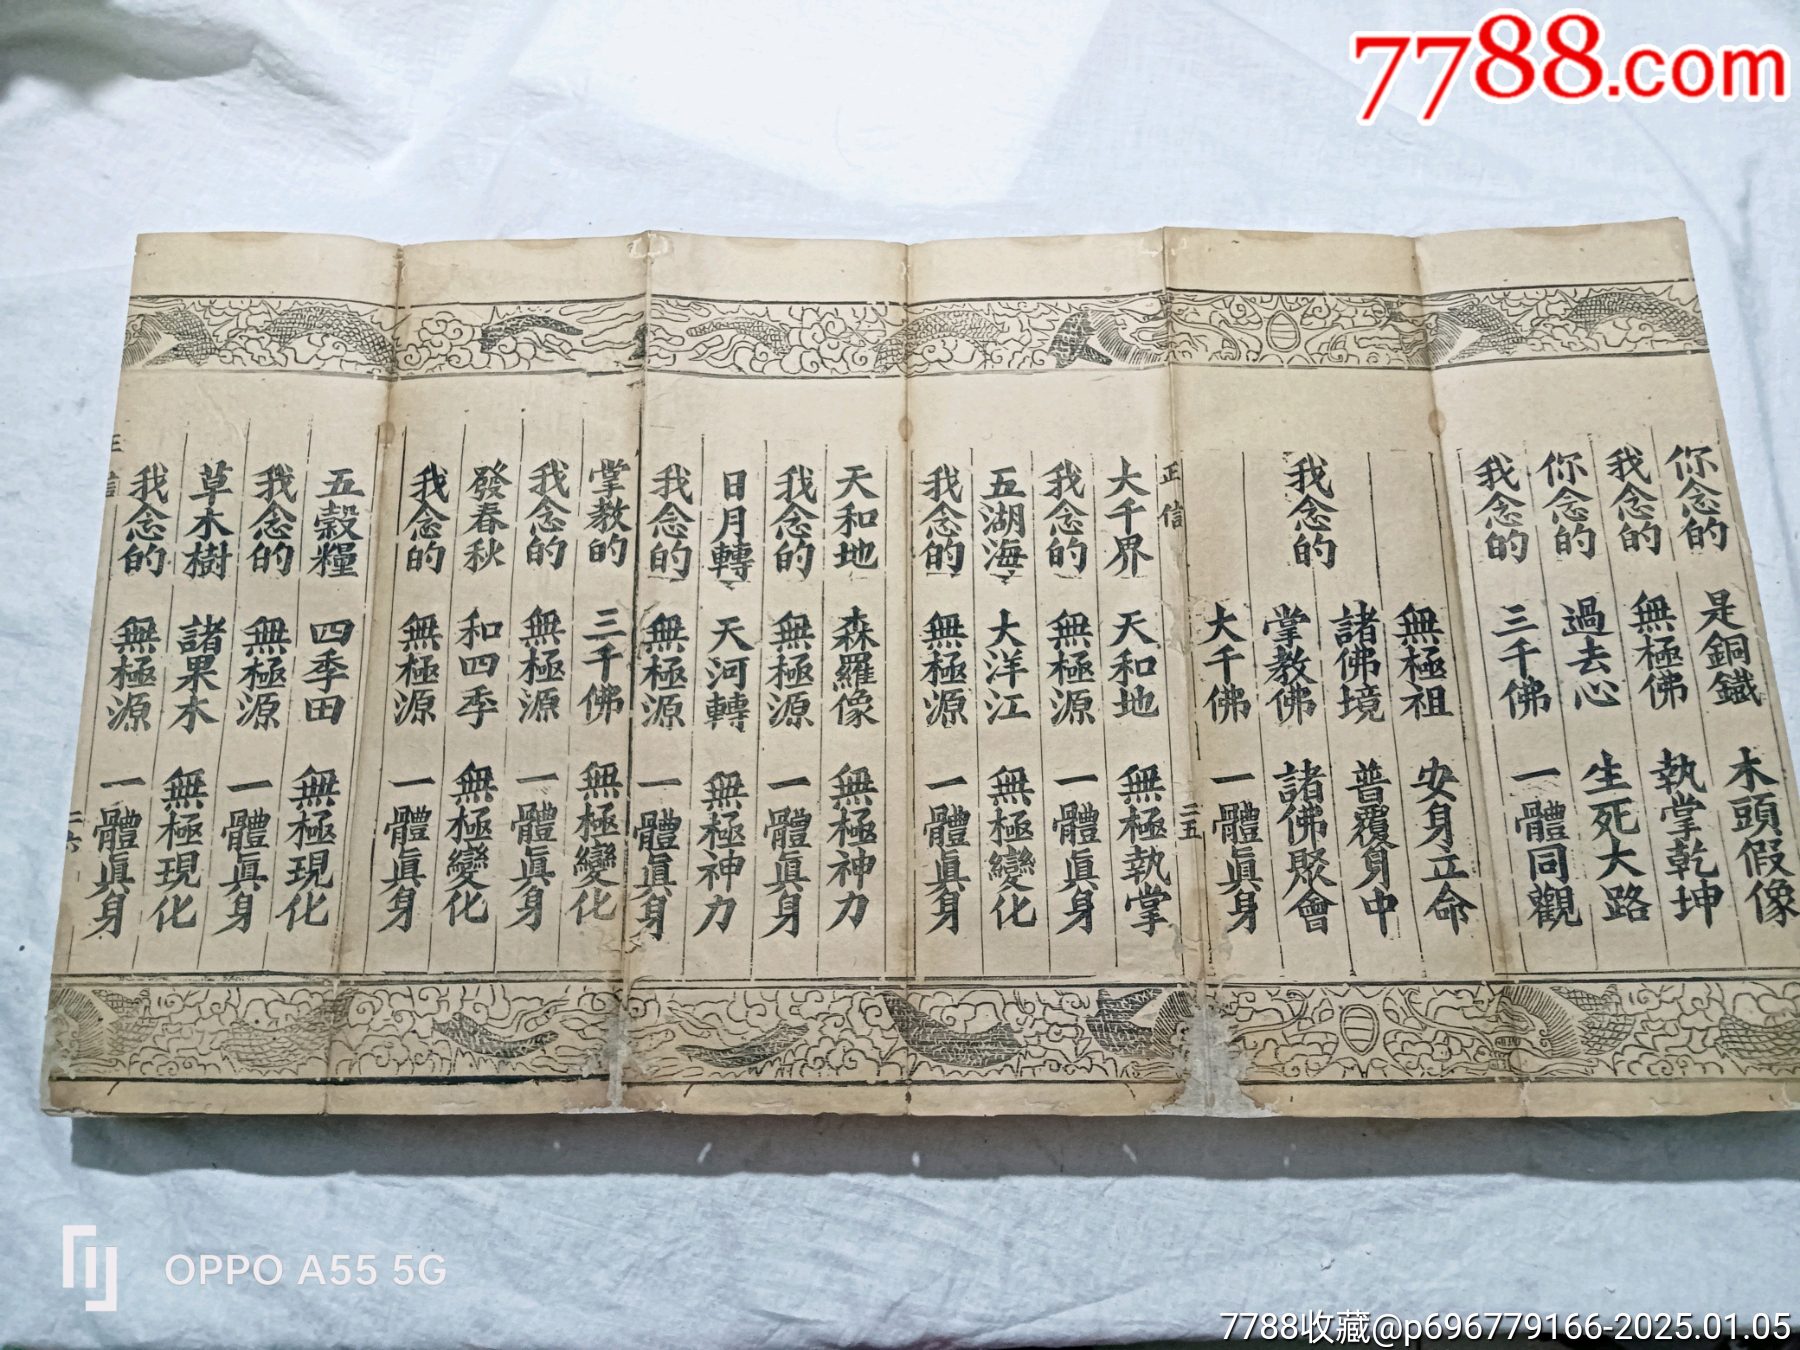 7788.com
你念的 是銅鐵 木頭假像
我念的 無極佛 執掌乾坤
你念的 過去心 生死大路
我念的 三千佛 一體同觀
無極祖 安身立命
諸佛境 普覆身中
我念的 掌教佛 諸佛聚會
大千佛 一體眞身
正信 二五
大千界 天和地 無極執掌
我念的 無極源 一體眞身
五湖海 大洋江 無極變化
我念的 無極源 一體眞身
天和地 森羅像 無極神力
我念的 無極源 一體眞身
日月轉 天河轉 無極神力
我念的 無極源 一體眞身
掌教的 三千佛 無極變化
我念的 無極源 一體眞身
發春秋 和四季 無極變化
我念的 無極源 一體眞身
五穀糧 四季田 無極現化
我念的 無極源 一體眞身
草木樹 諸果木 無極現化
我念的 無極源 一體眞身
正信 二六
OPPO A55 5G
7788收藏@p696779166-2025.01.05